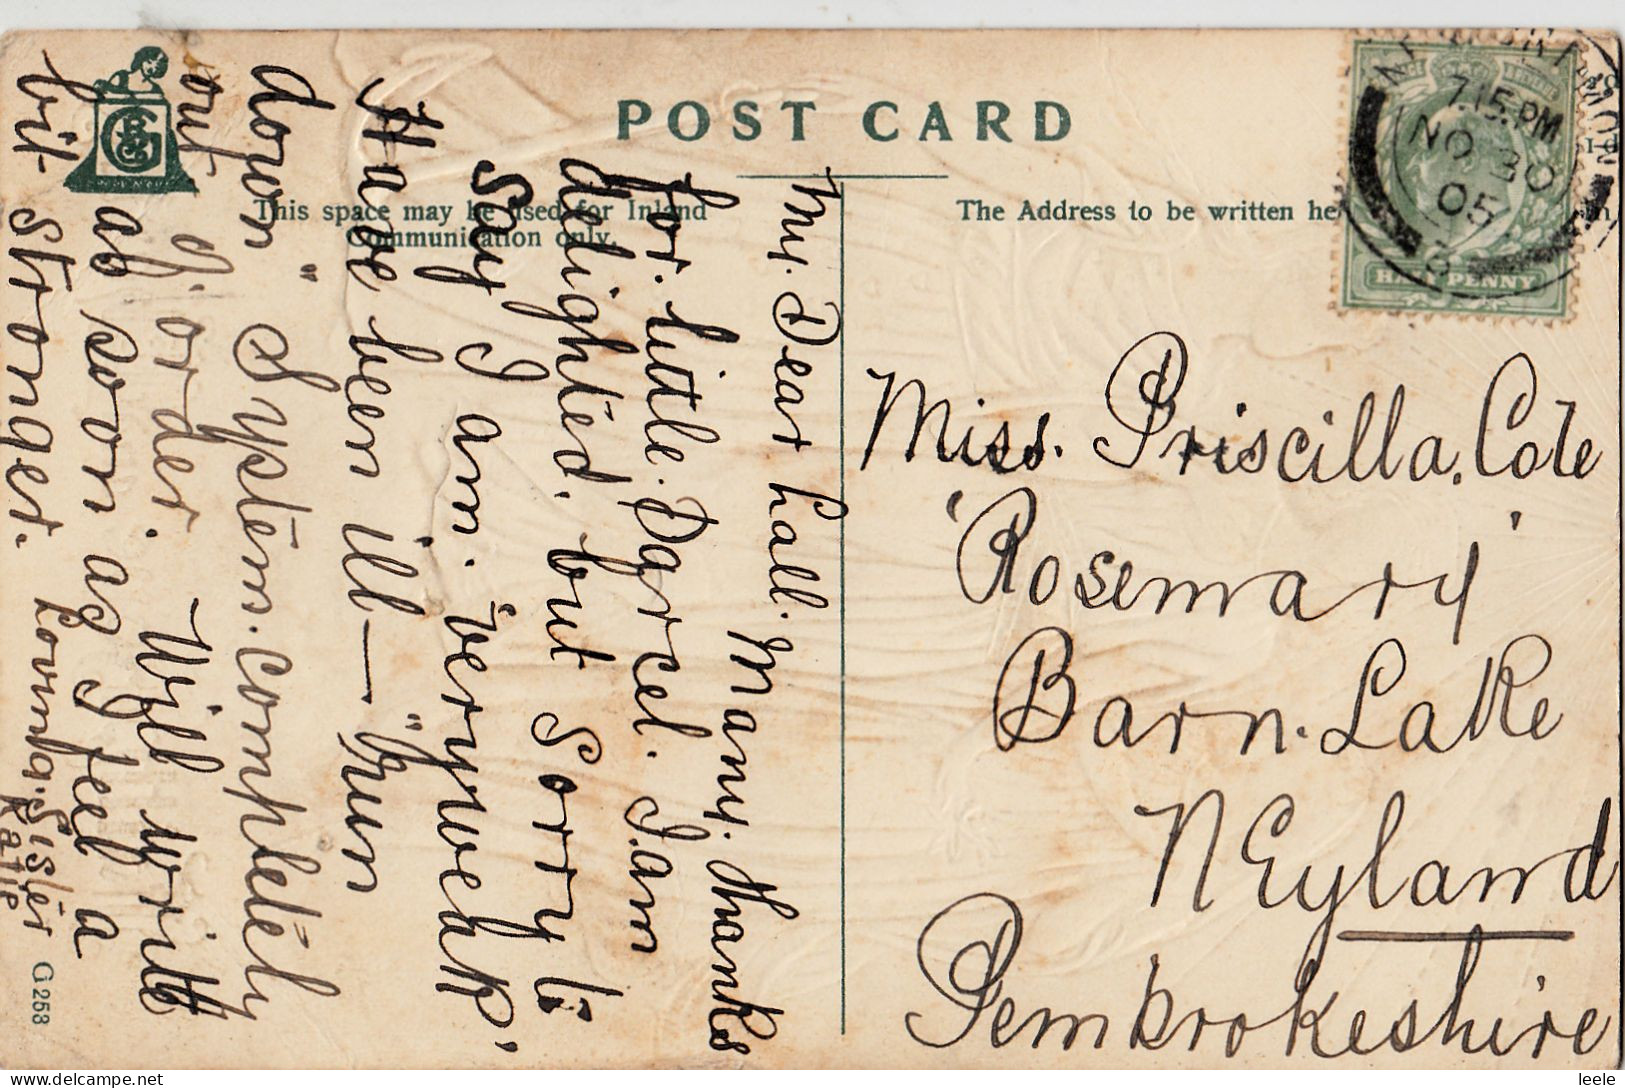 POST CARD
This space may be used for Inland
Communication only.
The Address to be written he
HALF PENNY
7.15.PM
NO 30
05
My. Dear Lall. Many. Thanks
for. little. Parcel. I. am
delighted. but Sorry to
Say I am. very weak
Have been ill — "run
down" System. completely
out of. order. Will write
as soon as I feel a
bit stronger. Loving. Sister
Katie
Miss. Priscilla. Cole
'Rosemary'
Barn. Lake
NEyland
Pembrokeshire
G 258
leele